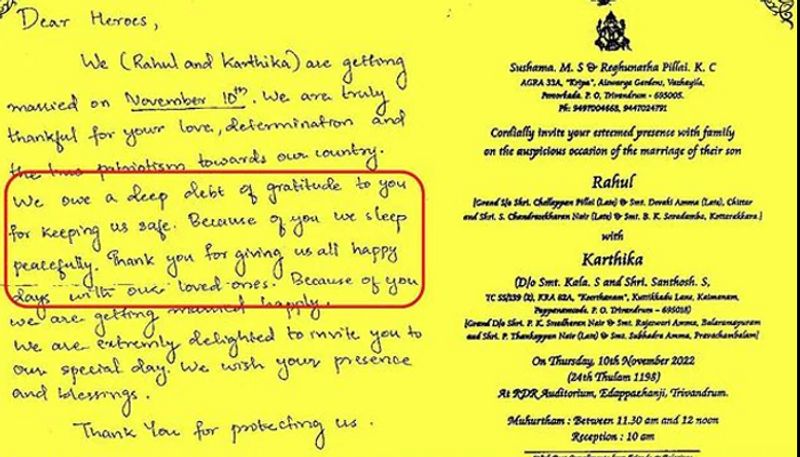 Dear Heroes,
We (Rahul and Karthika) are getting
married on November 10th. We are truly
thankful for your love, determination and
the true patriotism towards our country.
We owe a deep debt of gratitude to you
for keeping us safe. Because of you we sleep
peacefully. Thank you for giving us all happy
days with our loved ones. Because of you
we are getting married happily.
We are extremely delighted to invite you to
our special day. We wish your presence
and blessings.
Thank You for protecting us.
Sushama. M. S & Reghunatha Pillai. K. C
AGRA 33A, "Kripa", Aiswarya Gardens, Vazhayila,
Peroorkada. P. O, Trivandrum - 695005.
Ph: 9497004663, 9447024791
Cordially invite your esteemed presence with family
on the auspicious occasion of the marriage of their son
Rahul
[Grand S/o Shri. Chellappan Pillai (Late) & Smt. Devaki Amma (Late), Chittar
and Shri. S. Chandrasekharan Nair (Late) & Smt. B. K. Saradamba, Kottarakkara.]
with
Karthika
(D/o Smt. Kala. S and Shri. Santhosh. S,
TC 55/239 (2), KRA 82A, "Keerthanam", Kunkkadu Lane, Kaimanam,
Pappanamcode. P. O, Trivandrum - 695018)
[Grand D/o Shri. P. K. Sreedharan Nair & Smt. Rajeswari Amma, Balaramapuram
and Shri. P. Thankappan Nair (Late) & Smt. Subhadra Amma, Pravachambalam]
On Thursday, 10th November 2022
(24th Thulam 1198)
At RDR Auditorium, Edappazhanji, Trivandrum.
Muhurtham : Between 11.30 am and 12 noon
Reception : 10 am